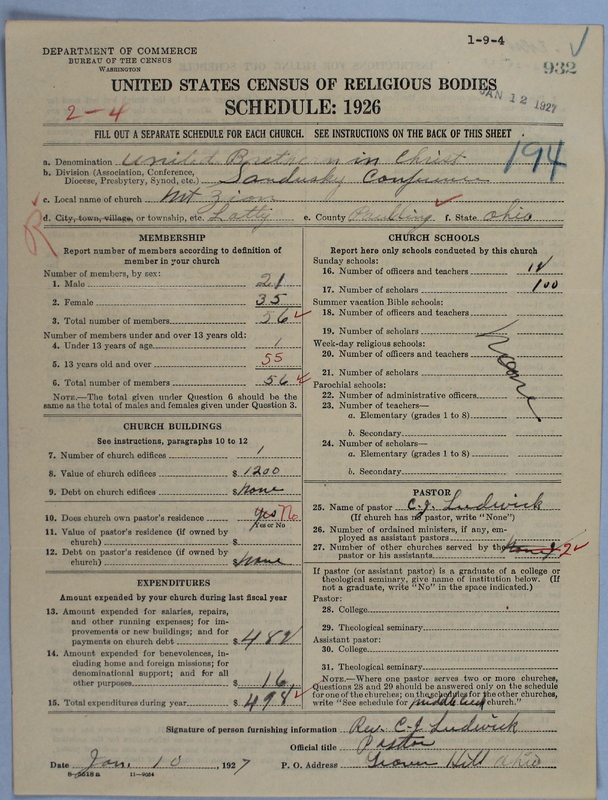 1-9-4
DEPARTMENT OF COMMERCE
BUREAU OF THE CENSUS
WASHINGTON
932
UNITED STATES CENSUS OF RELIGIOUS BODIES
JAN 12 1927
2-4
SCHEDULE: 1926
FILL OUT A SEPARATE SCHEDULE FOR EACH CHURCH. SEE INSTRUCTIONS ON THE BACK OF THIS SHEET
194
a. Denomination United Brethren in Christ
b. Division (Association, Conference, Diocese, Presbytery, Synod, etc.) Sandusky Conference
c. Local name of church Mt Zion
d. City, town, village, or township, etc. Latty e. County Paulding f. State Ohio
R
MEMBERSHIP
Report number of members according to definition of
member in your church
Number of members, by sex:
1. Male 21
2. Female 35
3. Total number of members 56
Number of members under and over 13 years old:
4. Under 13 years of age 1
5. 13 years old and over 55
6. Total number of members 56
NOTE.—The total given under Question 6 should be
same as the total of males and females given under Question 3.
CHURCH BUILDINGS
See instructions, paragraphs 10 to 12
7. Number of church edifices 1
8. Value of church edifices $ 1200
9. Debt on church edifices $ none
10. Does church own pastor's residence yes No
Yes or No
11. Value of pastor's residence (if owned by
church) $
12. Debt on pastor's residence (if owned by
church) $ none
EXPENDITURES
Amount expended by your church during last fiscal year
13. Amount expended for salaries, repairs,
and other running expenses; for im-
provements or new buildings; and for
payments on church debt $ 482
14. Amount expended for benevolences, in-
cluding home and foreign missions; for
denominational support; and for all
other purposes $ 16
15. Total expenditures during year $ 498
CHURCH SCHOOLS
Report here only schools conducted by this church
Sunday schools:
16. Number of officers and teachers
17. Number of scholars 100
Summer vacation Bible schools:
18. Number of officers and teachers
19. Number of scholars
Week-day religious schools:
20. Number of officers and teachers
21. Number of scholars
none
Parochial schools:
22. Number of administrative officers
23. Number of teachers—
a. Elementary (grades 1 to 8)
b. Secondary
24. Number of scholars—
a. Elementary (grades 1 to 8)
b. Secondary
PASTOR
25. Name of pastor C. J. Ludwick
(If church has no pastor, write "None")
26. Number of ordained ministers, if any, em-
ployed as assistant pastors
27. Number of other churches served by the
pastor or his assistants 2
If pastor (or assistant pastor) is a graduate of a college or
theological seminary, give name of institution below. (If
not a graduate, write "No" in the space indicated.)
Pastor:
28. College
29. Theological seminary
Assistant pastor:
30. College
31. Theological seminary
NOTE.—Where one pastor serves two or more churches,
Questions 28 and 29 should be answered only on the schedule
for one of the churches; on the schedules for the other churches,
write "See schedule for middle creek church."
Signature of person furnishing information Rev. C. J. Ludwick
Official title Pastor
Date Jan. 10, 1927 P. O. Address Grover Hill Ohio
8—5518 a 11—9034